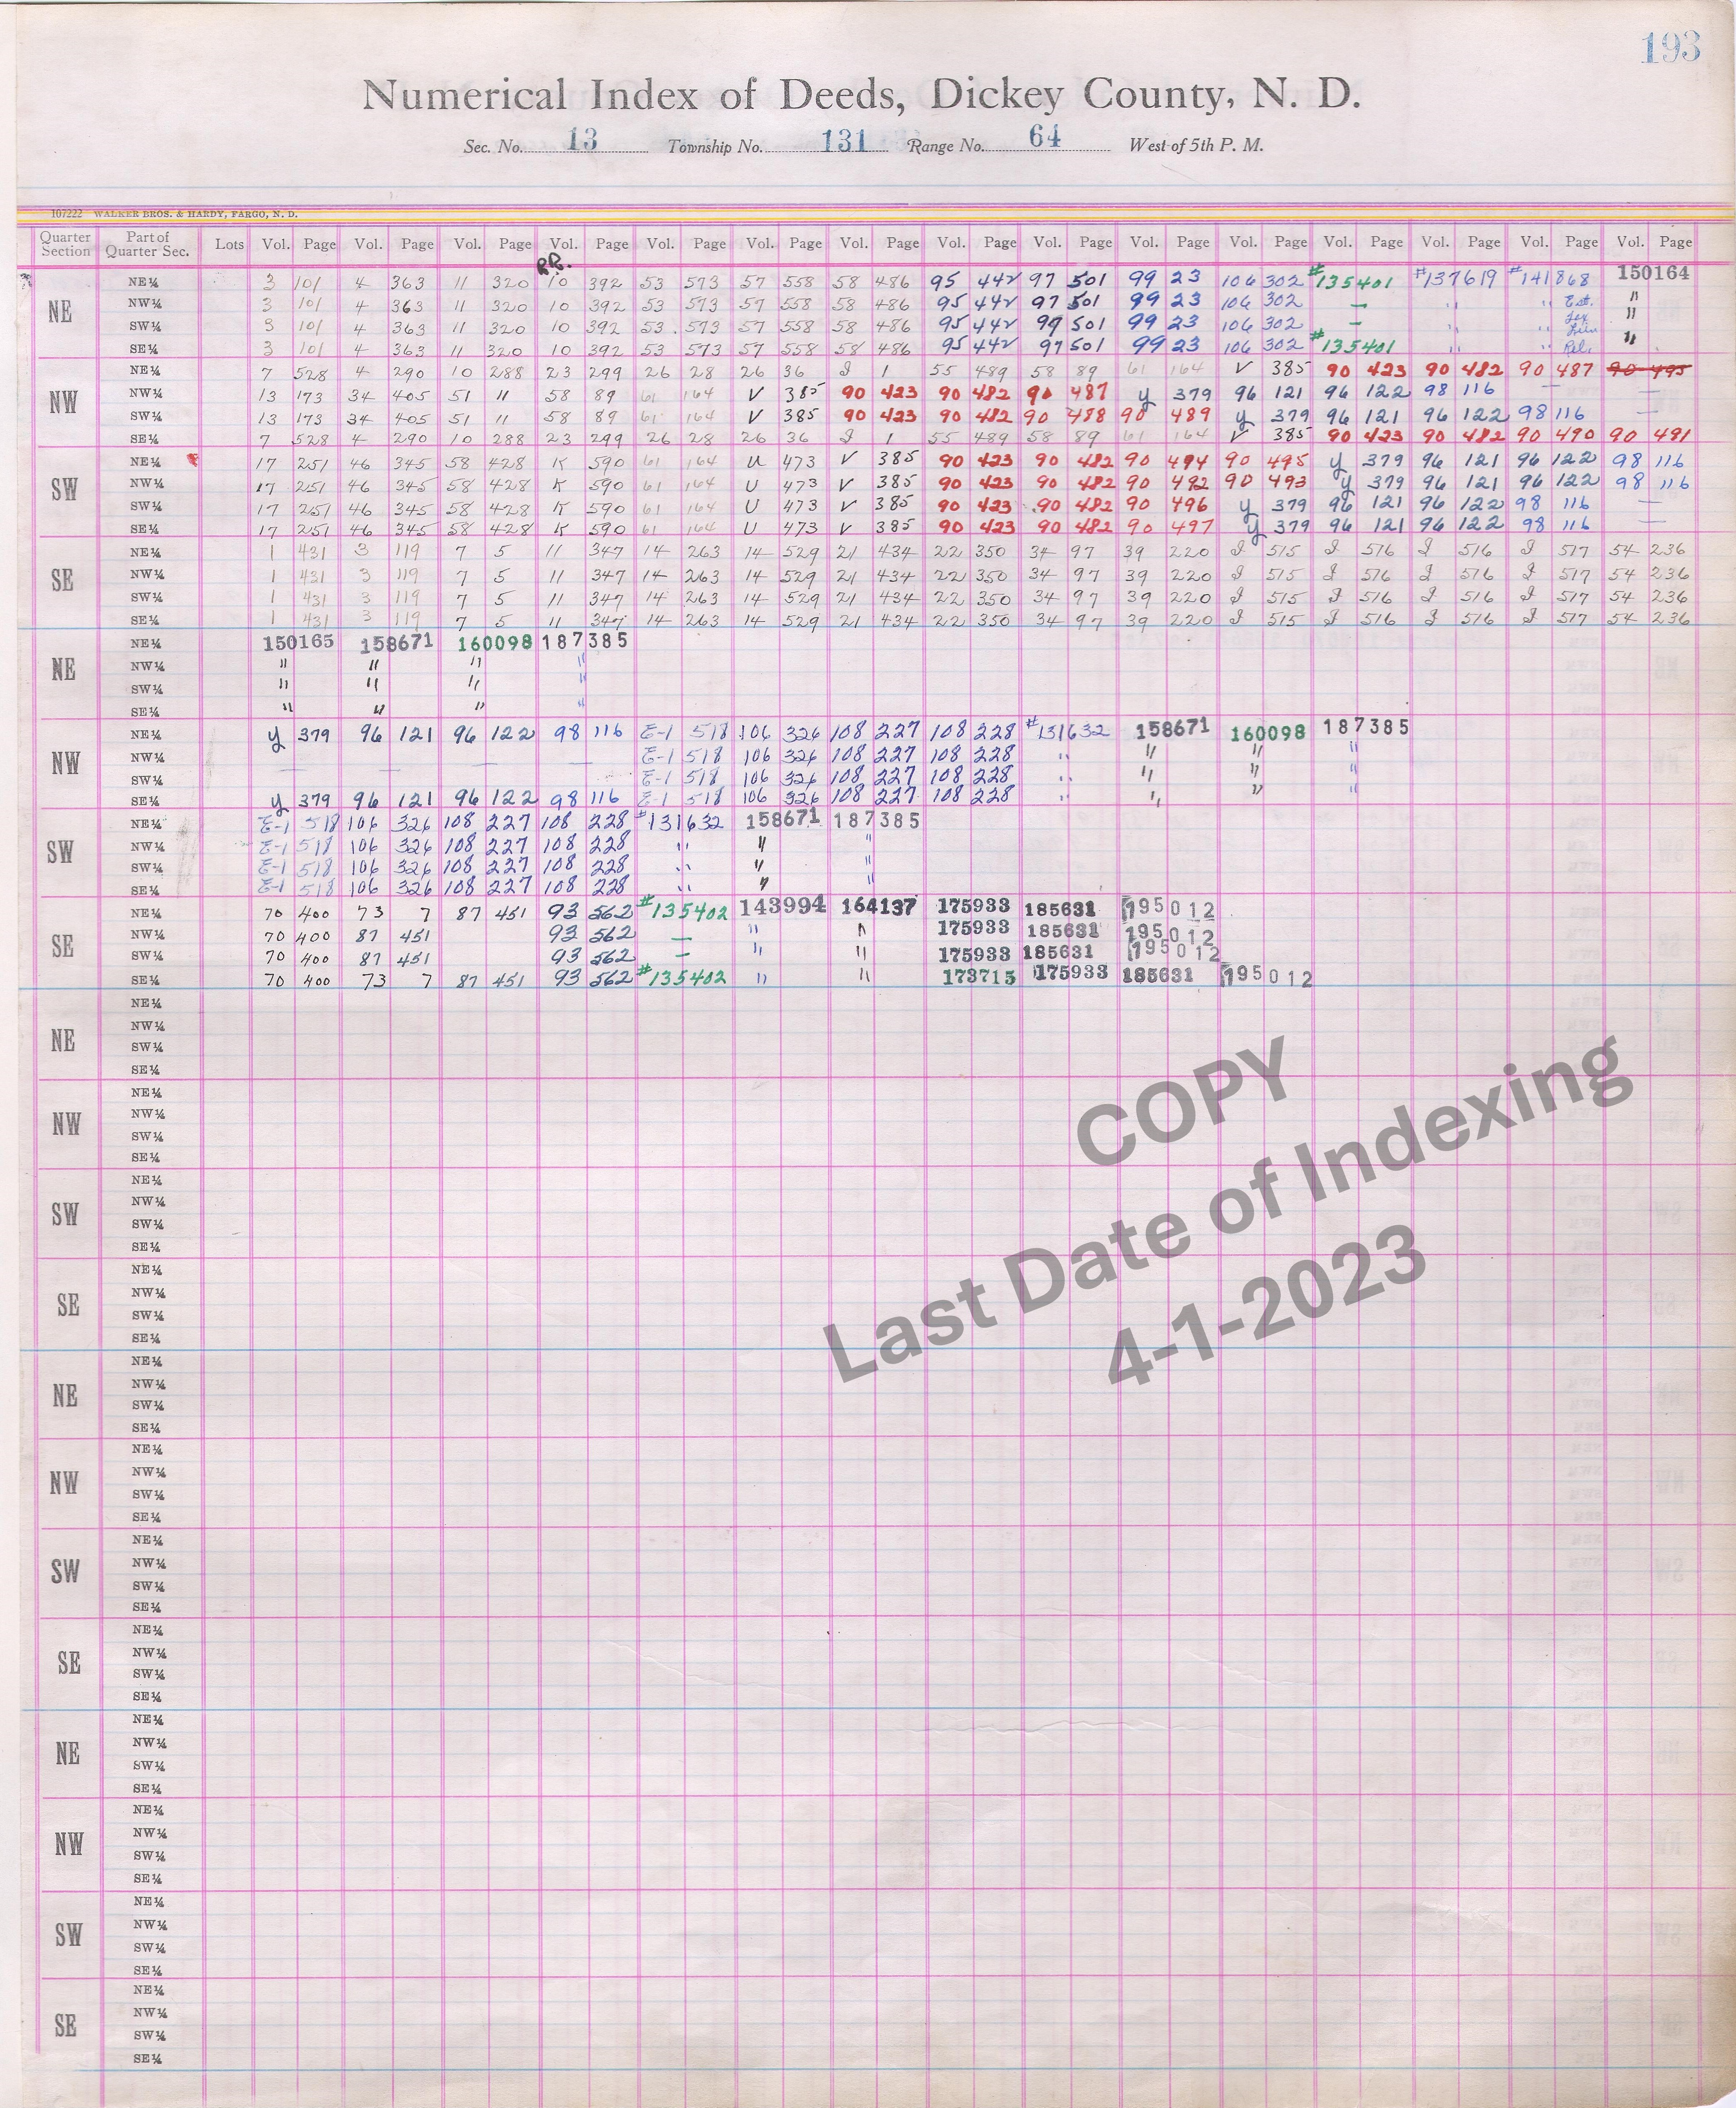 193
Numerical Index of Deeds, Dickey County, N. D.
Sec. No. 13 Township No. 131 Range No. 64 West of 5th P. M.
107222 WALKER BROS. & HARDY, FARGO, N. D.
Quarter Section Part of Quarter Sec. Lots Vol. Page Vol. Page Vol. Page Vol. Page Vol. Page Vol. Page Vol. Page Vol. Page Vol. Page Vol. Page Vol. Page Vol. Page Vol. Page Vol. Page Vol. Page
R.R.
NE
NE¼ 3 101 4 363 11 320 10 392 53 573 57 558 58 486 95 442 97 501 99 23 106 302 #135401 #137619 #141868 150164
NW¼ 3 101 4 363 11 320 10 392 53 573 57 558 58 486 95 442 97 501 99 23 106 302 — " " Est. "
SW¼ 3 101 4 363 11 320 10 392 53 573 57 558 58 486 95 442 97 501 99 23 106 302 — " " Tax Lien "
SE¼ 3 101 4 363 11 320 10 392 53 573 57 558 58 486 95 442 97 501 99 23 106 302 #135401 " " Rel. "
NW
NE¼ 7 528 4 290 10 288 23 299 26 28 26 36 J 1 55 489 58 89 61 164 V 385 90 423 90 482 90 487 90 495
NW¼ 13 173 34 405 51 11 58 89 61 164 V 385 90 423 90 482 90 487 y 379 96 121 96 122 98 116 — —
SW¼ 13 173 34 405 51 11 58 89 61 164 V 385 90 423 90 482 90 488 90 489 y 379 96 121 96 122 98 116 —
SE¼ 7 528 4 290 10 288 23 299 26 28 26 36 J 1 55 489 58 89 61 164 V 385 90 423 90 482 90 490 90 491
SW
NE¼ 17 251 46 345 58 428 K 590 61 164 U 473 V 385 90 423 90 482 90 494 90 495 y 379 96 121 96 122 98 116
NW¼ 17 251 46 345 58 428 K 590 61 164 U 473 V 385 90 423 90 482 90 492 90 493 y 379 96 121 96 122 98 116
SW¼ 17 251 46 345 58 428 K 590 61 164 U 473 V 385 90 423 90 482 90 496 y 379 96 121 96 122 98 116 —
SE¼ 17 251 46 345 58 428 K 590 61 164 U 473 V 385 90 423 90 482 90 497 y 379 96 121 96 122 98 116 —
SE
NE¼ 1 431 3 119 7 5 11 347 14 263 14 529 21 434 22 350 34 97 39 220 J 515 J 516 J 516 J 517 54 236
NW¼ 1 431 3 119 7 5 11 347 14 263 14 529 21 434 22 350 34 97 39 220 J 515 J 516 J 516 J 517 54 236
SW¼ 1 431 3 119 7 5 11 347 14 263 14 529 21 434 22 350 34 97 39 220 J 515 J 516 J 516 J 517 54 236
SE¼ 1 431 3 119 7 5 11 347 14 263 14 529 21 434 22 350 34 97 39 220 J 515 J 516 J 516 J 517 54 236
NE
NE¼ 150165 158671 160098 187385
NW¼ " " " "
SW¼ " " " "
SE¼ " " " "
NW
NE¼ y 379 96 121 96 122 98 116 E-1 518 106 326 108 227 108 228 #131632 158671 160098 187385
NW¼ E-1 518 106 326 108 227 108 228 " " " "
SW¼ — — — — E-1 518 106 326 108 227 108 228 " " "
SE¼ y 379 96 121 96 122 98 116 E-1 518 106 326 108 227 108 228 " " " "
SW
NE¼ E-1 518 106 326 108 227 108 228 #131632 158671 187385
NW¼ E-1 518 106 326 108 227 108 228 " " "
SW¼ E-1 518 106 326 108 227 108 228 " " "
SE¼ E-1 518 106 326 108 227 108 228 " " "
SE
NE¼ 70 400 73 7 87 451 93 562 #135402 143994 164137 175933 185631 195012
NW¼ 70 400 87 451 93 562 — " " 175933 185631 195012
SW¼ 70 400 87 451 93 562 — " " 175933 185631 195012
SE¼ 70 400 73 7 87 451 93 562 #135402 " " 173715 175933 185631 195012
NE
NE¼
NW¼
SW¼
SE¼
NW
NE¼
NW¼
SW¼
SE¼
SW
NE¼
NW¼
SW¼
SE¼
SE
NE¼
NW¼
SW¼
SE¼
NE
NE¼
NW¼
SW¼
SE¼
NW
NE¼
NW¼
SW¼
SE¼
SW
NE¼
NW¼
SW¼
SE¼
SE
NE¼
NW¼
SW¼
SE¼
NE
NE¼
NW¼
SW¼
SE¼
NW
NE¼
NW¼
SW¼
SE¼
SW
NE¼
NW¼
SW¼
SE¼
SE
NE¼
NW¼
SW¼
SE¼
COPY
Last Date of Indexing
4-1-2023